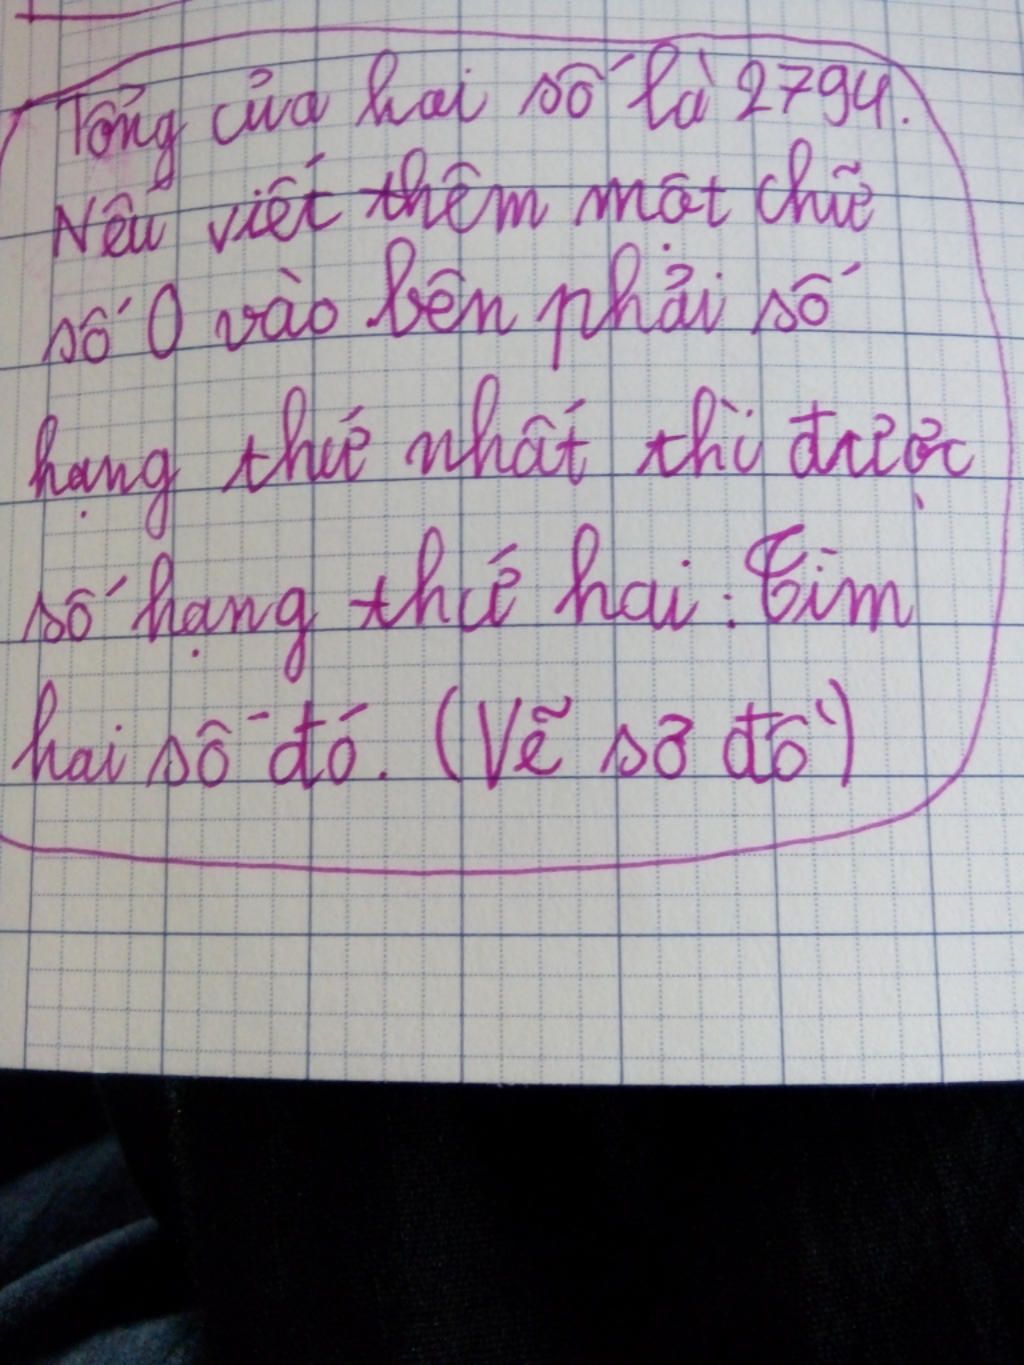 Tổng của hai số là 2794.
Nếu viết thêm một chữ
số 0 vào bên phải số
hạng thứ nhất thì được
số hạng thứ hai. Tìm
hai số đó. (Vẽ sơ đồ)